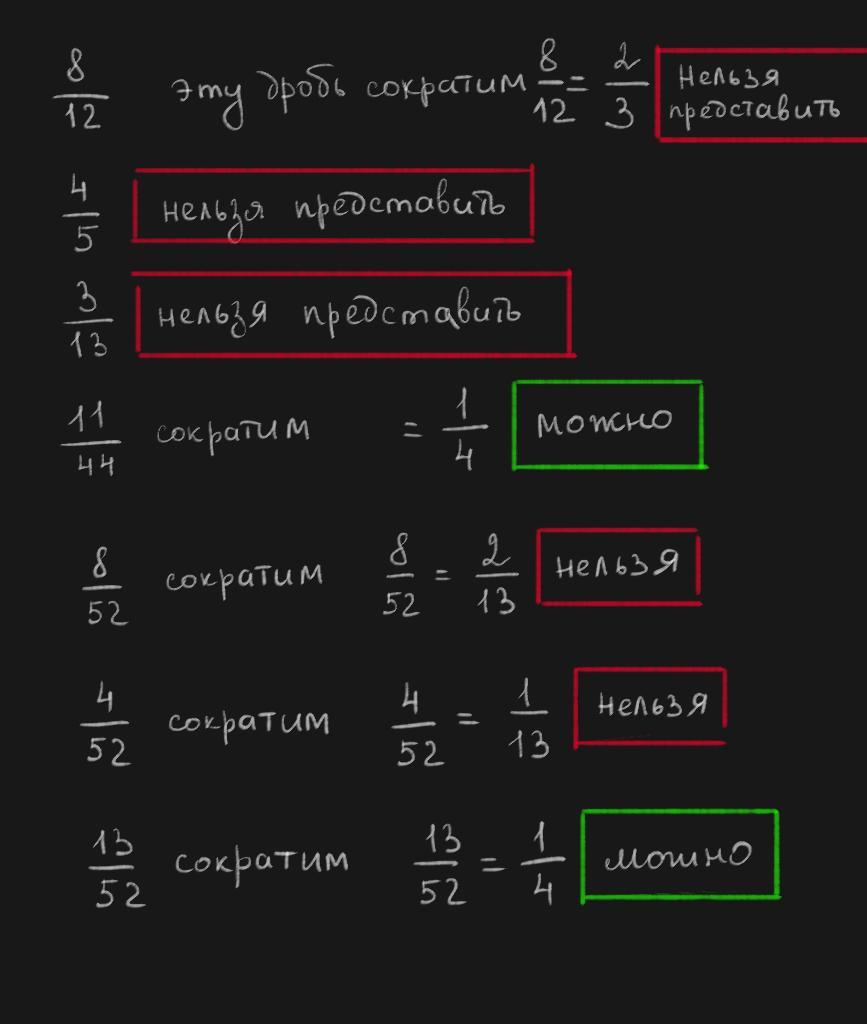 8/12 эту дробь сократим 8/12 = 2/3 Нельзя представить
4/5 нельзя представить
3/13 нельзя представить
11/44 сократим = 1/4 можно
8/52 сократим 8/52 = 2/13 нельзя
4/52 сократим 4/52 = 1/13 нельзя
13/52 сократим 13/52 = 1/4 можно